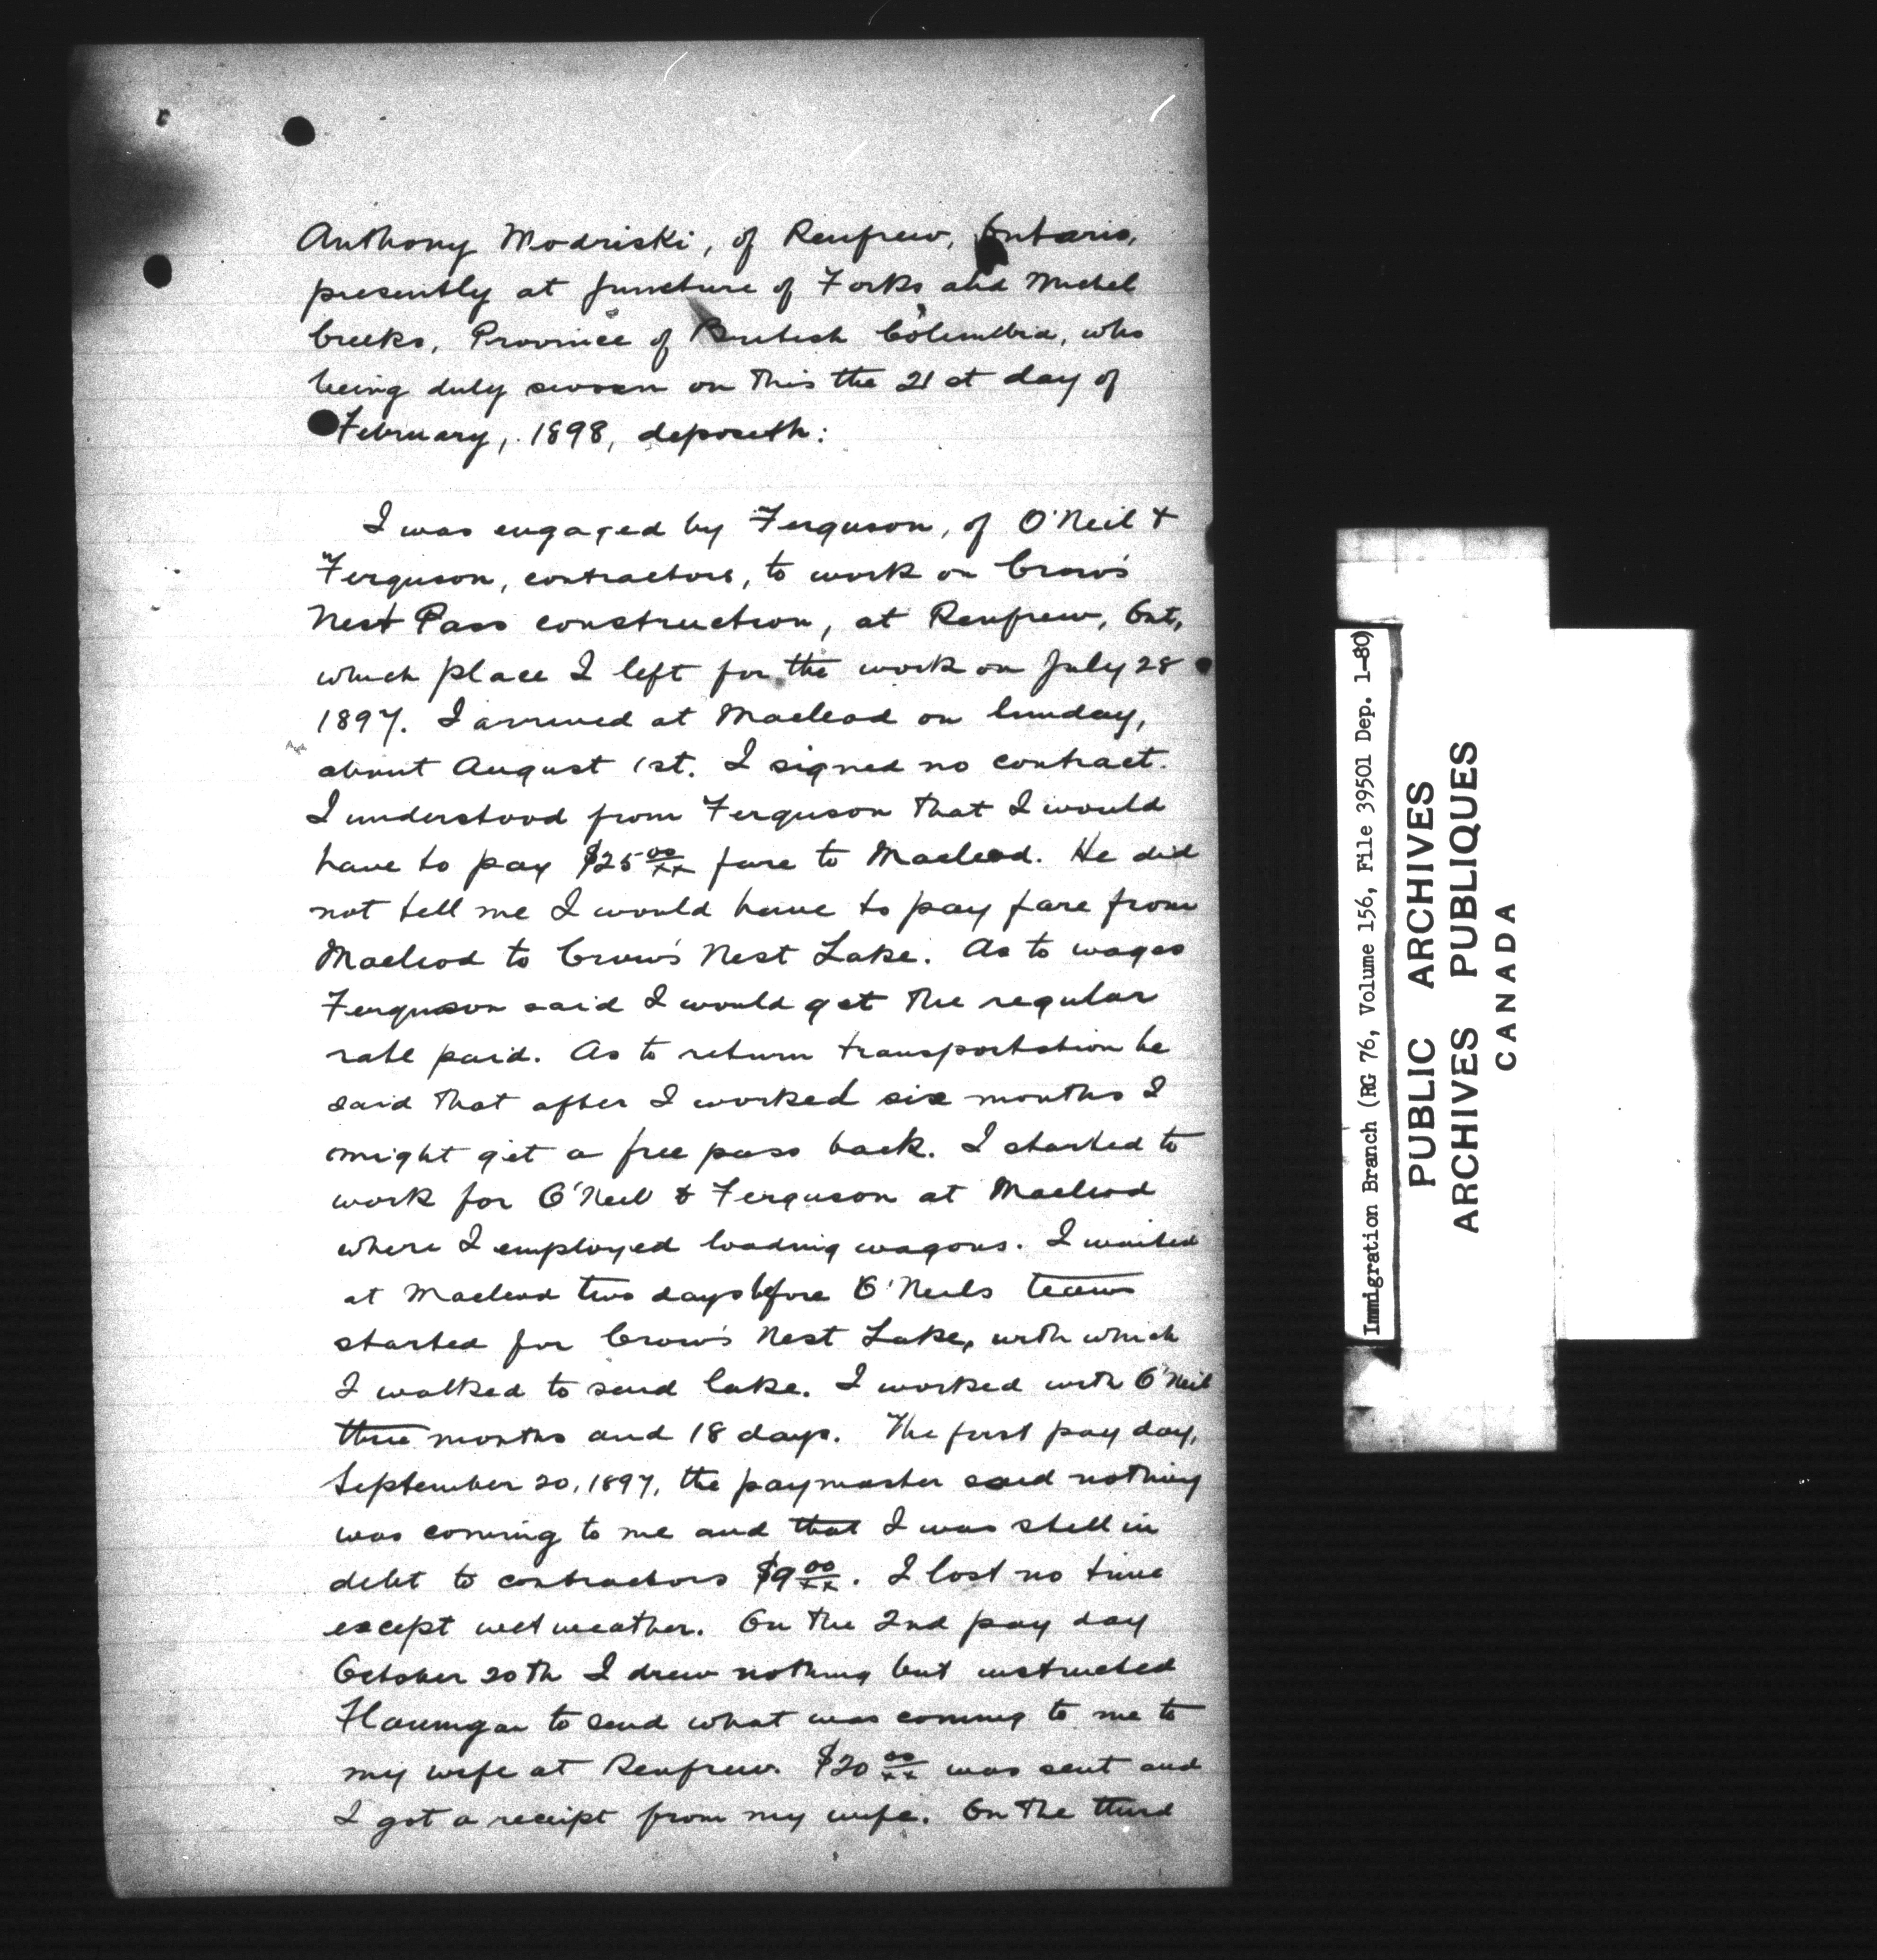 Anthony Modriski, of Renfrew, Ontario,
presently at juncture of Forks and Michel
Creeks, Province of British Columbia, who
being duly sworn on this the 21st day of
February, 1898, deposeth:
I was engaged by Ferguson, of O'Neil &
Ferguson, contractors, to work on Crow's
Nest Pass construction, at Renfrew, Ont,
which place I left for the work on July 28
1897. I arrived at Macleod on Sunday,
about August 1st. I signed no contract.
I understood from Ferguson that I would
have to pay $25 00/xx fare to Macleod. He did
not tell me I would have to pay fare from
Macleod to Crow's Nest Lake. As to wages
Ferguson said I would get the regular
rate paid. As to return transportation he
said that after I worked six months I
might get a free pass back. I started to
work for O'Neil & Ferguson at Macleod
where I employed loading wagons. I waited
at Macleod two days before O'Neils teams
started for Crow's Nest Lake, with which
I walked to said lake. I worked with O'Neil
three months and 18 days. The first pay day,
September 20, 1897, the paymaster said nothing
was coming to me and that I was still in
debt to contractors $9 00/xx. I lost no time
except wet weather. On the 2nd pay day
October 20th I drew nothing but instructed
to send what was coming to me to
my wife at Renfrew. $20 00/xx was sent and
I got a receipt from my wife. On the third
Immigration Branch (RG 76, Volume 156, File 39501 Dep. 1-80)
PUBLIC ARCHIVES
ARCHIVES PUBLIQUES
CANADA